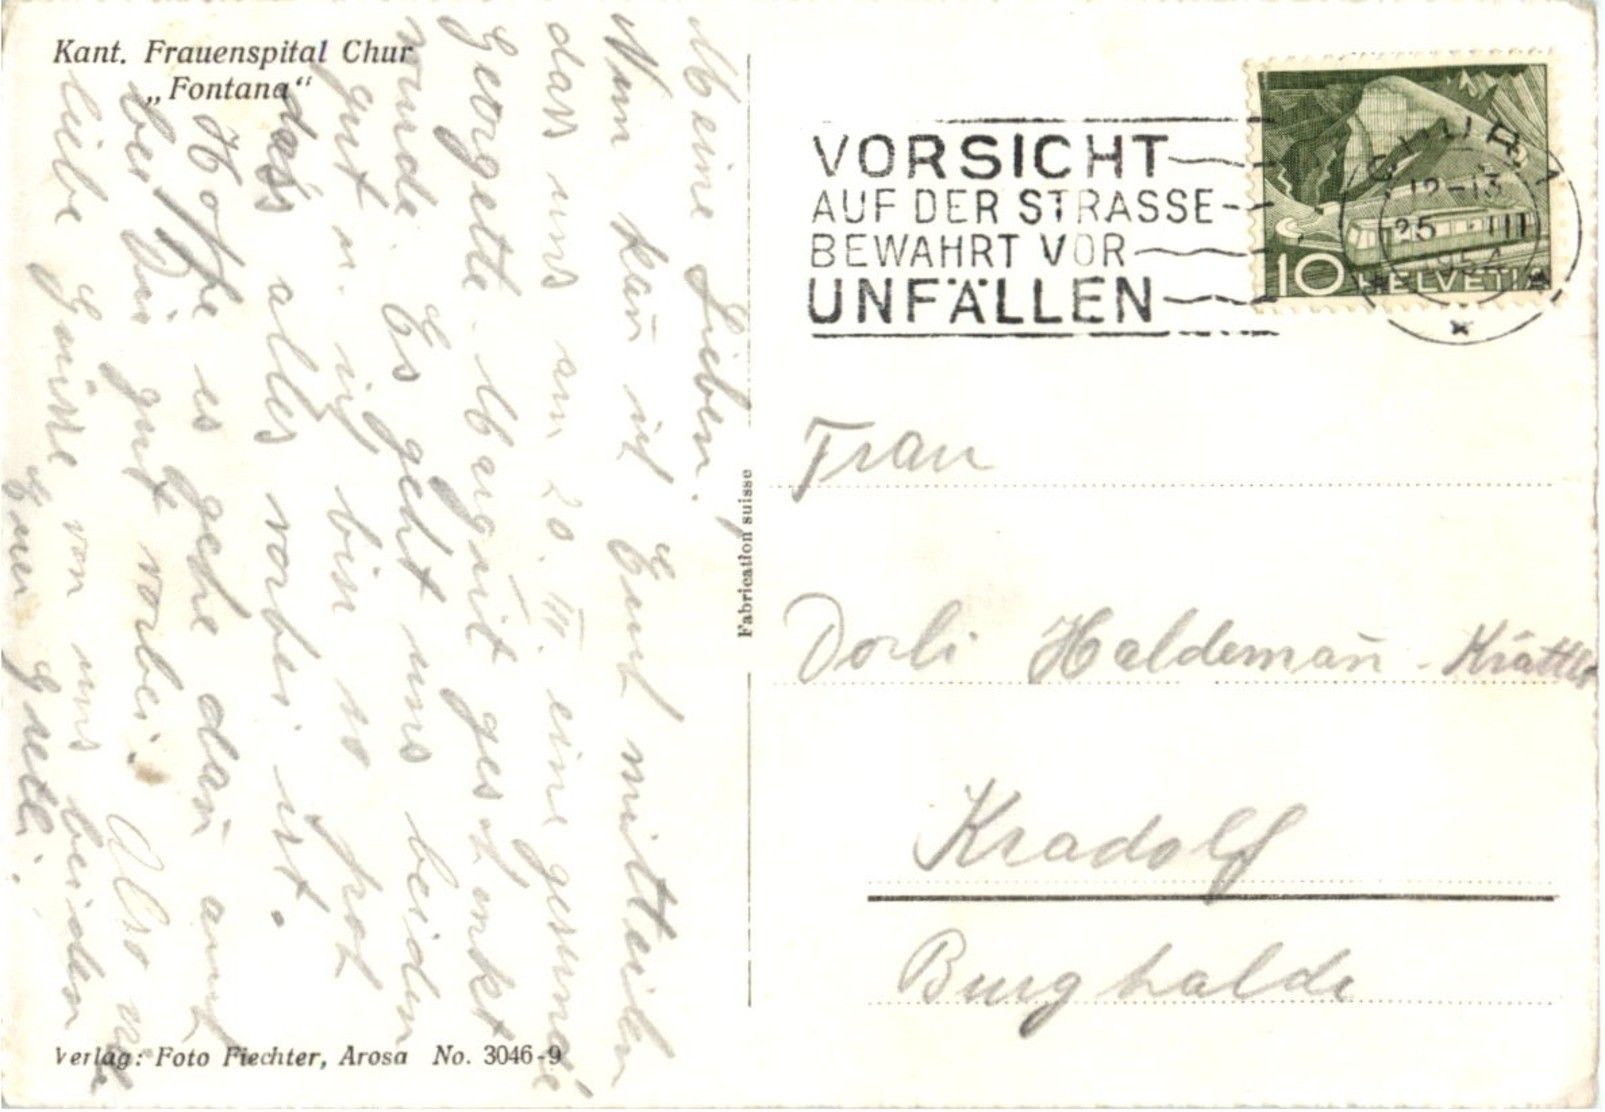 Kant. Frauenspital Chur
„Fontana“
Meine Lieben.
Nun kan̄ ich Euch mitteilen
dass uns am 20. III. eine gesunde
Georgette Margrit geschenkt
wurde. Es geht uns beiden
gut u. ich bin so froh
dass alles vorbei ist.
Hoffe es gehe dan̄ auch
bei Dir gut vorbei. Also
liebe Grüsse von uns beiden
Eure
Verlag: Foto Fiechter, Arosa No. 3046-9
Fabrication suisse
VORSICHT
AUF DER STRASSE
BEWAHRT VOR
UNFÄLLEN
CHUR 1
12-13
25 III
1954
10 HELVETIA
Frau
Dorli Haldeman̄ - Krättli
Kradolf
Burghalde